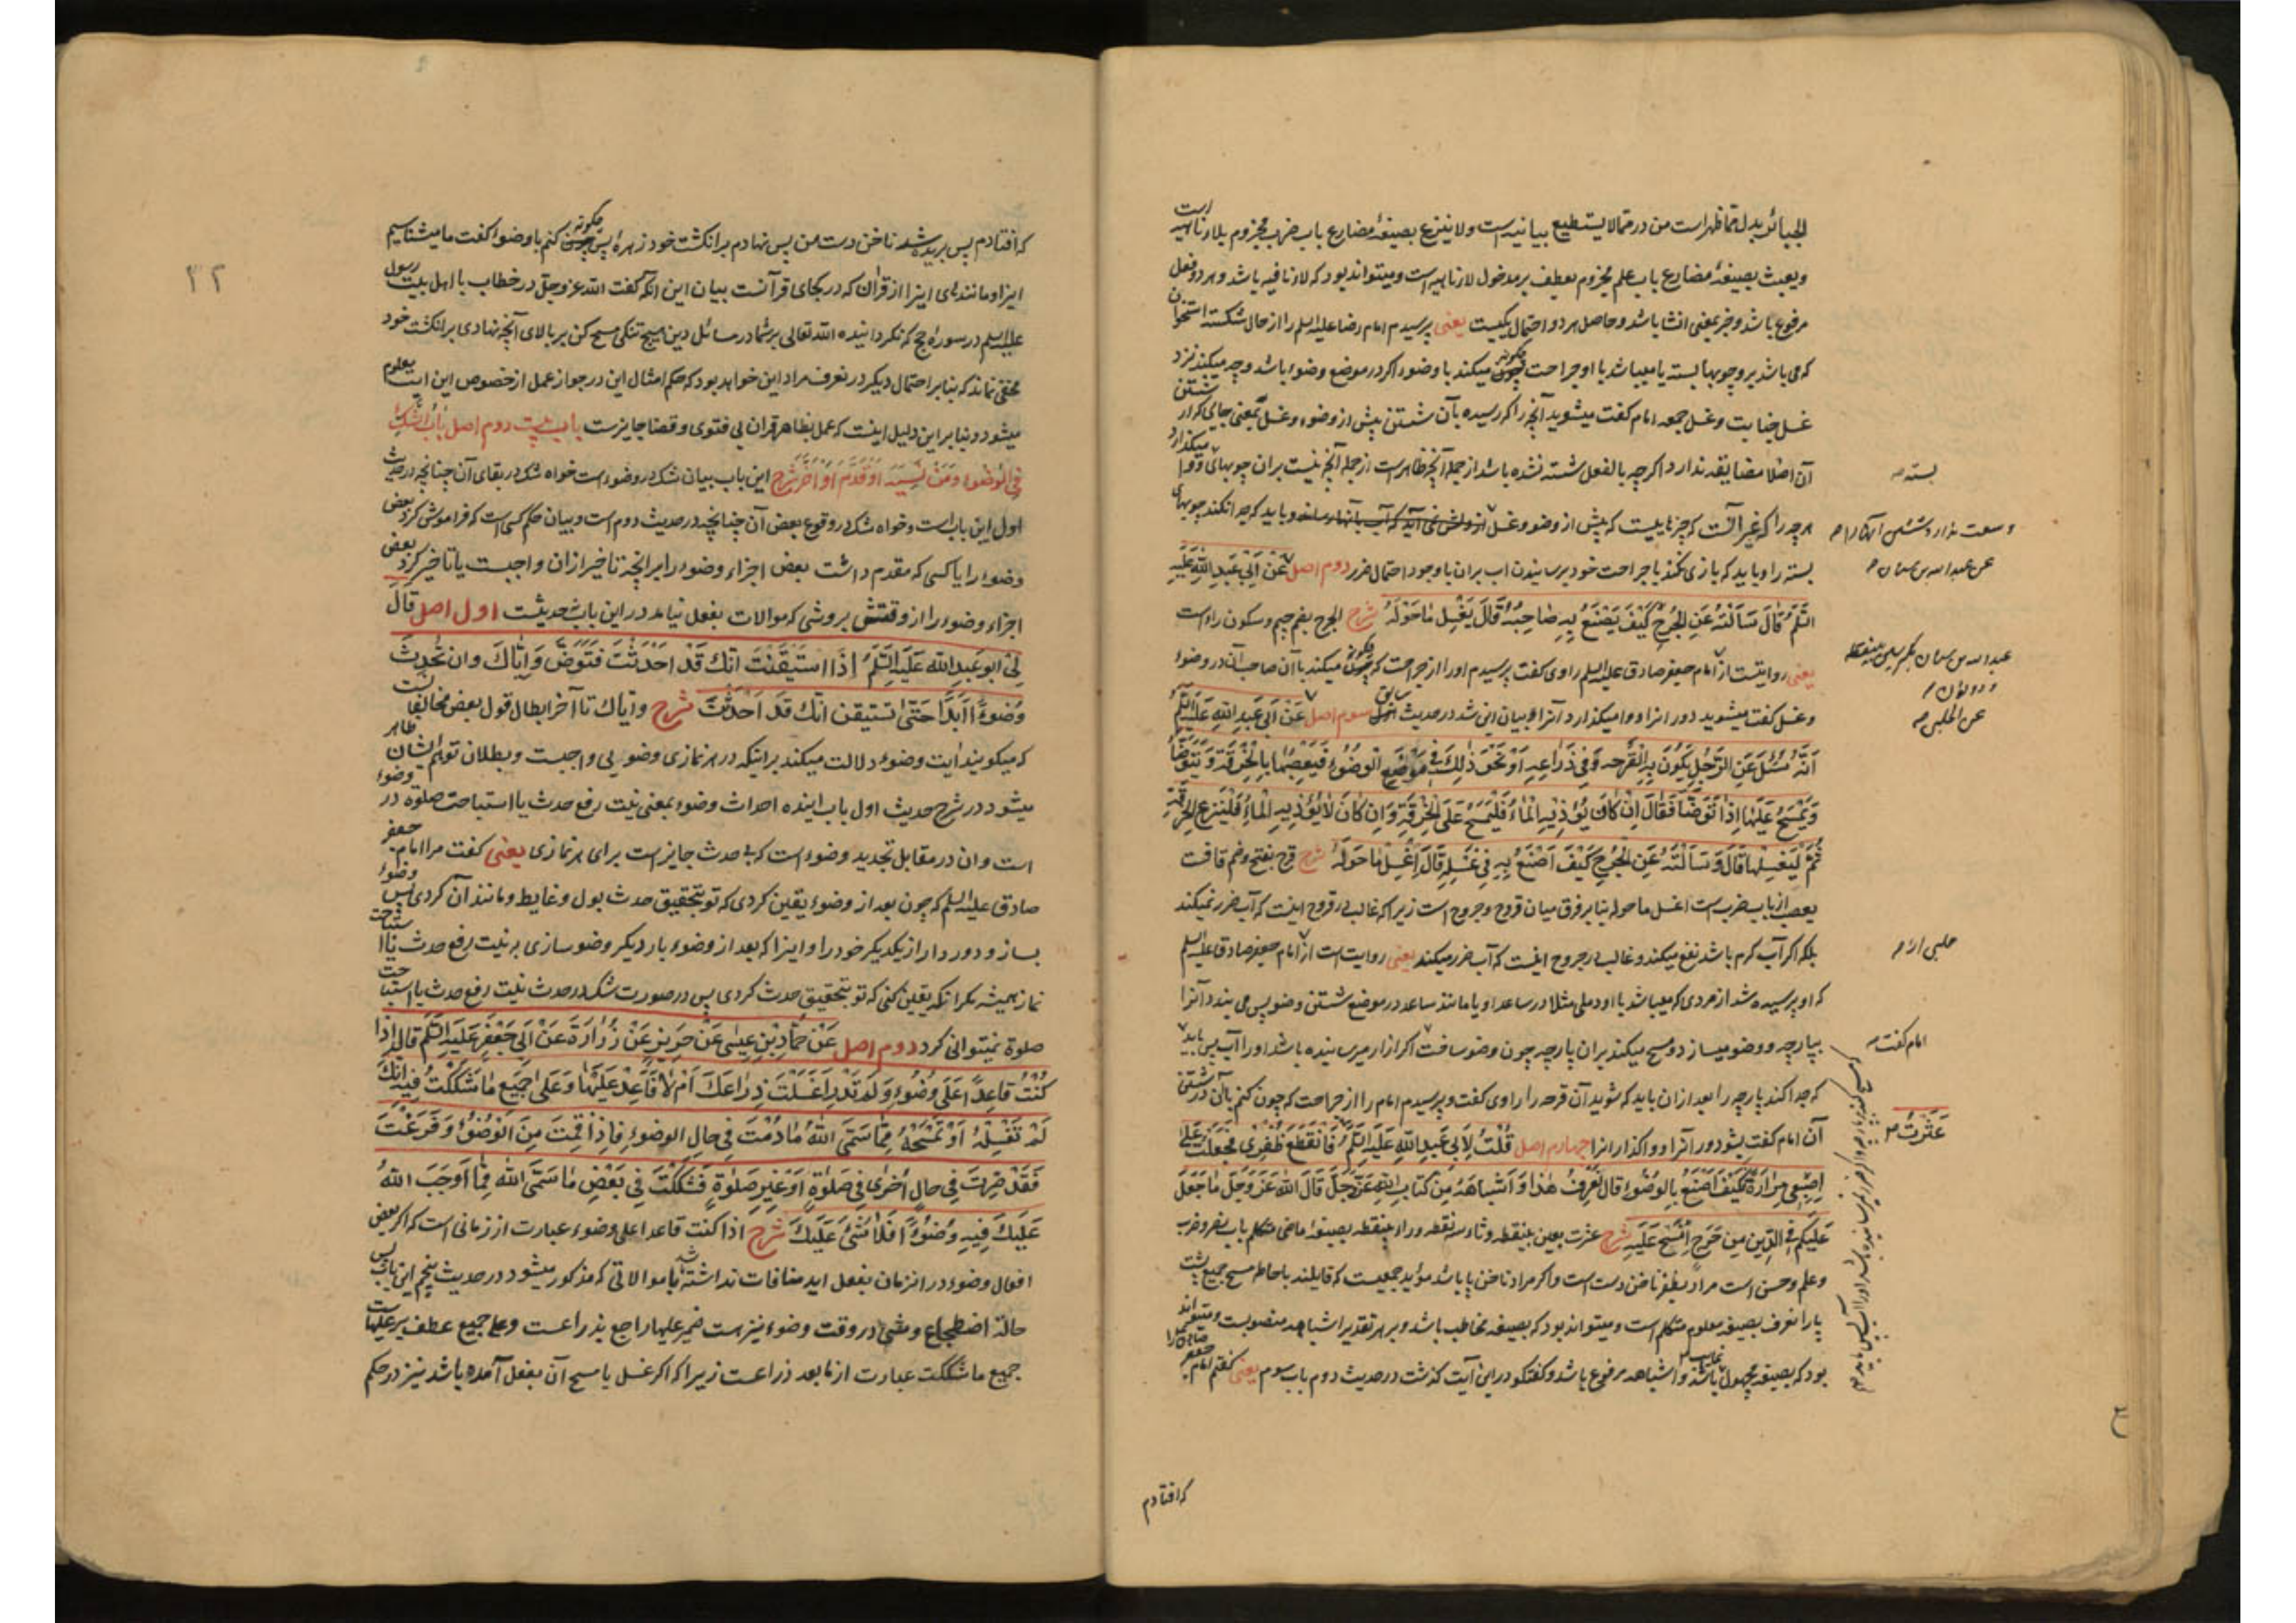 الجبائر بدل مما ظهر است من در مما لا یستطیع بیانیه است و لا ینزع بصیغهٔ مضارع باب ضرب مجزوم بلاء ناهیه است
و یعبث بصیغهٔ مضارع باب علم مجزوم بعطف بر مدخول لاء ناهیه است و میتواند بود که لاء نافیه باشد و هر دو فعل
مرفوع باشد و خبر بمعنی انشا باشد و حاصل هر دو احتمال یکیست یعنی پرسیدم امام رضا علیه السلم را از حال شکسته استخوان
که می باشد بر او چوبها بسته یا میباشد با او جراحت چگونه میکند با وضوء اگر در موضع وضوء باشد و چه میکند نزد
غسل جنابت و غسل جمعه امام گفت میشوید آنچه را که رسیده بآن شستن پیش از وضوء و غسل بمعنی جایی که از شستن
آن اصلا مضایقه ندارد اگر چه بالفعل شسته نشده باشد از جمله آنچه ظاهر است از جمله آنچه نیست بران چوبهای و وا میگذارد
هر چه را که غیر آنست که چیزهاییست که پیش از وضو و غسل و باید که جدا نکند چوبهای
بسته را و باید که بازی نکند با جراحت خود برسانیدن اب بران با وجود احتمال ضرر دوم اصل عَنْ اَبِی عَبْدِ اللّٰهِ عَلَیْهِ
السَّلَمُ قَالَ سَاَلْتُهُ عَنِ الْجُرْحِ کَیْفَ یَصْنَعُ بِهِ صَاحِبُهُ قَالَ یَغْسِلُ مَا حَوْلَهُ شرح الجرح بضم جیم و سکون راء است
یعنی روایتست از امام جعفر صادق علیه السلم راوی گفت پرسیدم او را از جراحت که چگونه میکند با آن صاحب آن در وضوء
و غسل گفت میشوید دور انرا و وا میگذارد آنرا و بیان این شد در حدیث سابق سوم اصل عَنْ اَبِی عَبْدِ اللّٰهِ عَلَیْهِ السَّلَمُ
اَنَّهُ سُئِلَ عَنِ الرَّجُلِ یَکُونُ بِهِ الْقَرْحَه فِی ذِرَاعِهِ اَوْ نَحْوِ ذٰلِکَ فِی مَوْضِعِ الْوُضُوءِ فَیَعْصِبُهَا بِالْخِرْقَةِ وَ یَتَوَضَّأُ
وَ یَمْسَحُ عَلَیْهَا اِذَا تَوَضَّأَ فَقَالَ اِنْ کَانَ یُؤْذِیهِ الْمَاءُ فَلْیَمْسَحْ عَلَی الْخِرْقَةِ وَ اِنْ کَانَ لَا یُؤْذِیهِ الْمَاءُ فَلْیَنْزِعِ الْخِرْقَةَ
ثُمَّ لْیَغْسِلْهَا قَالَ وَ سَاَلْتُهُ عَنِ الْجُرْحِ کَیْفَ اَصْنَعُ بِهِ فِی غَسْلِهِ قَالَ اغْسِلْ مَا حَوْلَهُ شرح قرح بفتح و ضم قافست
یعصب از باب ضرب است اغسل ما حوله بنا بر فرق میان قروح و جروح است زیرا که غالب در قروح اینست که آب ضرر نمیکند
بلکه اگر آب گرم باشد نفع میکند و غالب در جروح اینست که آب ضرر میکند یعنی روایت است از امام جعفر صادق علیه السلم
که او پرسیده شد از مردی که میباشد با او دملی مثلا در ساعد او یا مانند ساعد در موضع شستن وضو پس می بندد آنرا
بپارچه و وضو میسازد و مسح میکند بران پارچه چون وضو ساخت اگر ازار میرسانیده باشد او را آب پس باید
که جدا کند پارچه را بعد ازان باید که شوید آن قرحه را راوی گفت و پرسیدم امام را از جراحت که چون کنم بآن در شستن
آن امام گفت بشو دور آنرا و واگذار انرا چهارم اصل قُلْتُ لِاَبِی عَبْدِ اللّٰهِ عَلَیْهِ السَّلَمُ فَانْقَطَعَ ظُفْرِی فَجَعَلْتُ عَلَی
اِصْبَعِی مَرَارَةً فَکَیْفَ اَصْنَعُ بِالْوُضُوءِ قَالَ تَعْرِفُ هٰذَا وَ اَشْبَاهَهُ مِنْ کِتَابِ اللّٰهِ عَزَّ وَ جَلَّ قَالَ اللّٰهُ عَزَّ وَ جَلَّ مَا جَعَلَ
عَلَیْکُمْ فِی الدِّینِ مِنْ حَرَجٍ اِمْسَحْ عَلَیْهِ شرح عثرت بعین بینقطه و ثاء سه نقطه و راء بینقطه بصیغهٔ ماضی متکلم باب نصر و ضرب
و علم و حسن است مراد بظفر ناخن دست است و اگر مراد ناخن پا باشد مؤید جمعیست که قایلند باحاطه مسح جمیع پشت
پا را نعرف بصیغه معلوم متکلم است و میتواند بود که بصیغه مخاطب باشد و بر هر تقدیر اشباهه منصوبست و میتواند
بود که بصیغه مجهول غایب باشد و اشباهه مرفوع باشد و گفتگو در این آیت گذشت در حدیث دوم باب سوم یعنی گفتم امام جعفر صادق را
که افتادم
بسته صح
عن عبد الله بن سنان صح
عن الحلبی صح
حلبی
امام گفت صح
عَثَرْتُ صح
۲۲
که افتادم پس بریده شد ناخن دست من پس نهادم بر انگشت خود زهره پس چگونه کنم با وضوء گفت ما میشناسیم
اینرا و مانندهای اینرا از قرآن که در یکجای قرآنست بیان این آنکه گفت الله عز و جل در خطاب با اهل بیت رسول
علیه السلم در سوره حج که نگردانیده الله تعالی بر شما در مسائل دین هیچ تنگی مسح کن بر بالای آنچه نهادی بر انگشت خود
مخفی نماند که بنا بر احتمال دیگر در نعرف مراد این خواهد بود که حکم امثال این در جواز عمل از خصوص این ایت معلوم
میشود و بنا بر این دلیل اینست که عمل بظاهر قران بی فتوی و قضا جایز است باب بیست دوم اصل بَابُ الشَّکِّ
فِی الْوُضُوءِ وَ مَنْ نَسِیَهُ اَوْ قَدَّمَ اَوْ اَخَّرَ شرح این باب بیان شک در وضوء است خواه شک در بقای آن چنانچه در حدیث
اول این باب است و خواه شک در وقوع بعض آن چنانچه در حدیث دوم است و بیان حکم کسی است که فراموش کرد بعض
وضوء را یا کسی که مقدم داشت بعض اجزاء وضوء را بر آنچه تاخیر ازان واجبست یا تاخیر کرد بعض
اجزاء وضوء را از وقتش بروشی که موالات بفعل نیامد در این باب حدیثست اول اصل قَالَ
لِی اَبُو عَبْدِ اللّٰهِ عَلَیْهِ السَّلَمُ اِذَا اسْتَیْقَنْتَ اَنَّکَ قَدْ اَحْدَثْتَ فَتَوَضَّ وَ اِیَّاکَ وَ اَنْ تُحْدِثَ
وُضُوءًا اَبَدًا حَتّٰی تَسْتَیْقِنَ اَنَّکَ قَدْ اَحْدَثْتَ شرح و ایاک تا آخر ابطال قول بعض مخالفانست
که میگویند ایت وضوء دلالت میکند بر اینکه در هر نمازی وضویی واجبست و بطلان توهم ایشان ظاهر
میشود در شرح حدیث اول باب اینده احداث وضوء بمعنی نیت رفع حدث یا استباحت صلوة در وضوء
است و ان در مقابل تجدید وضوء است که بی حدث جایز است برای هر نمازی یعنی گفت مرا امام جعفر
صادق علیه السلم که چون بعد از وضوء یقین کردی که تو بتحقیق حدث بول و غایط و مانند آن کردی پس وضوء
بساز و دور دار از یکدیگر خود را و اینرا که بعد از وضوء بار دیگر وضو سازی به نیت رفع حدث یا استباحت
نماز همیشه مگر انکه یقین کنی که تو بتحقیق حدث کردی پس در صورت شک در حدث نیت رفع حدث یا استباحت
صلوة نمیتوانی کرد دوم اصل عَنْ حَمَّادِ بْنِ عِیسٰی عَنْ حَرِیزٍ عَنْ زُرَارَةَ عَنْ اَبِی جَعْفَرٍ عَلَیْهِ السَّلَمُ قَالَ اِذَا
کُنْتَ قَاعِدًا عَلَی وُضُوءٍ وَ لَمْ تَدْرِ اَغَسَلْتَ ذِرَاعَکَ اَمْ لَا فَاَعِدْ عَلَیْهَا وَ عَلٰی جَمِیعِ مَا شَکَکْتَ فِیهِ اَنَّکَ
لَمْ تَغْسِلْهُ اَوْ تَمْسَحْهُ مِمَّا سَمَّی اللّٰهُ مَا دُمْتَ فِی حَالِ الْوُضُوءِ فَاِذَا قُمْتَ مِنَ الْوُضُوءِ وَ فَرَغْتَ
فَقَدْ صِرْتَ فِی حَالٍ اُخْرٰی فِی صَلٰوةٍ اَوْ غَیْرِ صَلٰوةٍ فَشَکَکْتَ فِی بَعْضِ مَا سَمَّی اللّٰهُ مِمَّا اَوْجَبَ اللّٰهُ
عَلَیْکَ فِیهِ وُضُوءًا فَلَا شَیْءَ عَلَیْکَ شرح اذا کنت قاعدا علی وضوء عبارت از زمانی است که اگر بعض
افعال وضوء در انزمان بفعل اید منافات نداشته باشد با موالاتی که مذکور میشود در حدیث پنجم این باب پس
حالة اضطجاع و مشی در وقت وضوء نیز است ضمیر علیها راجع بذراعست و علی جمیع عطف بر علیهاست
جمیع ما شککت عبارت از ما بعد ذراعست زیرا که اگر غسل یا مسح آن بفعل آمده باشد نیز در حکم